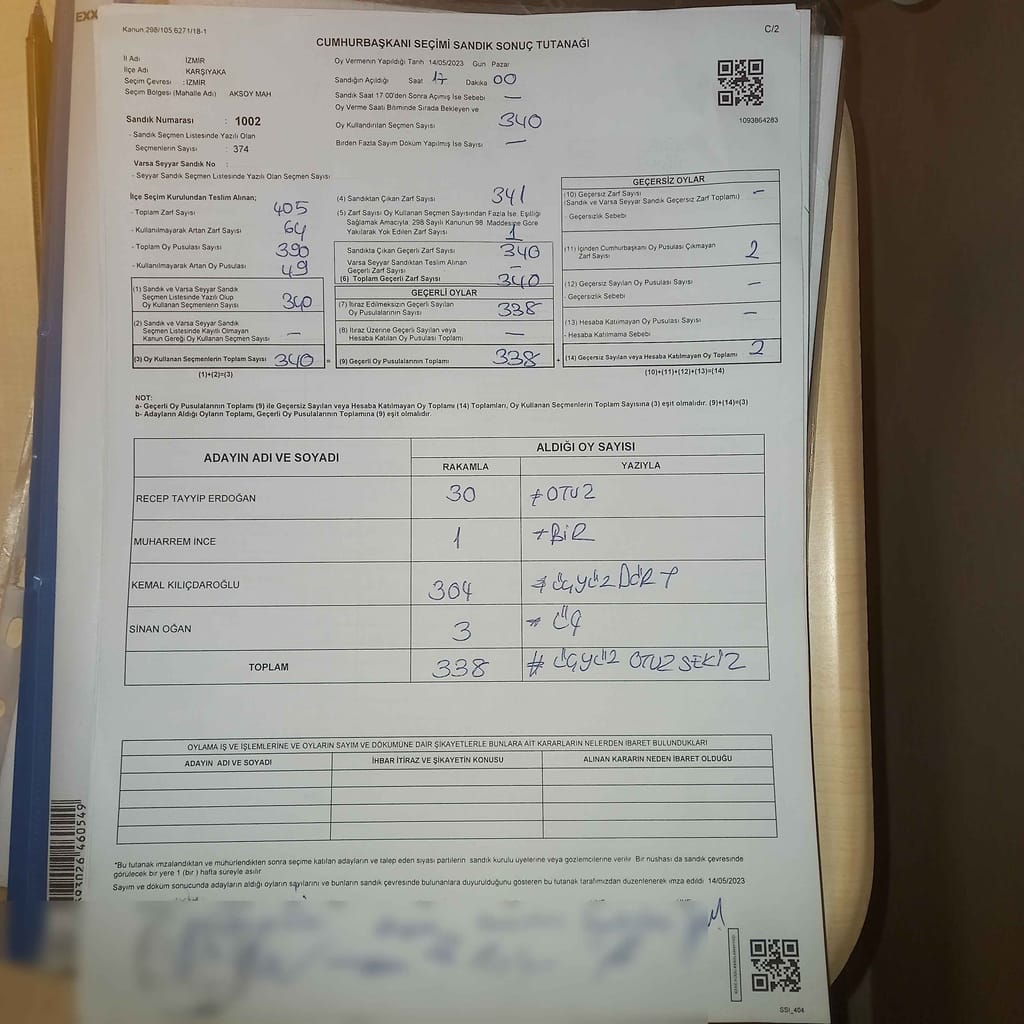 EXX
Kanun.298/105,6271/18-1
C/2
CUMHURBAŞKANI SEÇİMİ SANDIK SONUÇ TUTANAĞI
İl Adı İZMİR
İlçe Adı KARŞIYAKA
Seçim Çevresi : İZMİR
Seçim Bölgesi (Mahalle Adı) AKSOY MAH
Oy Vermenin Yapıldığı Tarih 14/05/2023 Gün Pazar
Sandığın Açıldığı Saat 17 Dakika 00
Sandık Saat 17.00'den Sonra Açımış İse Sebebi —
Oy Verme Saati Bitiminde Sırada Bekleyen ve
Oy Kullandırılan Seçmen Sayısı 340
Birden Fazla Sayım Döküm Yapılmış İse Sayısı —
1093864283
Sandık Numarası : 1002
- Sandık Seçmen Listesinde Yazılı Olan
Seçmenlerin Sayısı : 374
Varsa Seyyar Sandık No :
- Seyyar Sandık Seçmen Listesinde Yazılı Olan Seçmen Sayısı
İlçe Seçim Kurulundan Teslim Alınan;
- Toplam Zarf Sayısı 405
- Kullanılmayarak Artan Zarf Sayısı 64
- Toplam Oy Pusulası Sayısı 390
- Kullanılmayarak Artan Oy Pusulası 49
(1) Sandık ve Varsa Seyyar Sandık
Seçmen Listesinde Yazılı Olup
Oy Kullanan Seçmenlerin Sayısı 340
(2) Sandık ve Varsa Seyyar Sandık
Seçmen Listesinde Kayıtlı Olmayan
Kanun Gereği Oy Kullanan Seçmen Sayısı —
(3) Oy Kullanan Seçmenlerin Toplam Sayısı 340 =
(1)+(2)=(3)
(4) Sandıktan Çıkan Zarf Sayısı 341
(5) Zarf Sayısı Oy Kullanan Seçmen Sayısından Fazla İse, Eşitliği
Sağlamak Amacıyla, 298 Sayılı Kanunun 98 Maddesine Göre
Yakılarak Yok Edilen Zarf Sayısı 1
Sandıkta Çıkan Geçerli Zarf Sayısı 340
Varsa Seyyar Sandıktan Teslim Alınan
Geçerli Zarf Sayısı —
(6) Toplam Geçerli Zarf Sayısı 340
GEÇERLİ OYLAR
(7) İtiraz Edilmeksizin Geçerli Sayılan
Oy Pusulalarının Sayısı 338
(8) İtiraz Üzerine Geçerli Sayılan veya
Hesaba Katılan Oy Pusulası Toplamı —
(9) Geçerli Oy Pusulalarının Toplamı 338 +
GEÇERSİZ OYLAR
(10) Geçersiz Zarf Sayısı —
(Sandık ve Varsa Seyyar Sandık Geçersiz Zarf Toplamı)
- Geçersizlik Sebebi
(11) İçinden Cumhurbaşkanı Oy Pusulası Çıkmayan
Zarf Sayısı 2
(12) Geçersiz Sayılan Oy Pusulası Sayısı —
- Geçersizlik Sebebi
(13) Hesaba Katılmayan Oy Pusulası Sayısı —
- Hesaba Katılmama Sebebi
(14) Geçersiz Sayılan veya Hesaba Katılmayan Oy Toplamı 2
(10)+(11)+(12)+(13)=(14)
NOT:
a- Geçerli Oy Pusulalarının Toplamı (9) ile Geçersiz Sayılan veya Hesaba Katılmayan Oy Toplamı (14) Toplamları, Oy Kullanan Seçmenlerin Toplam Sayısına (3) eşit olmalıdır. (9)+(14)=(3)
b- Adayların Aldığı Oyların Toplamı, Geçerli Oy Pusulalarının Toplamına (9) eşit olmalıdır.
ADAYIN ADI VE SOYADI
ALDIĞI OY SAYISI
RAKAMLA YAZIYLA
RECEP TAYYİP ERDOĞAN 30 #OTUZ
MUHARREM İNCE 1 #BİR
KEMAL KILIÇDAROĞLU 304 #ÜÇYÜZ DÖRT
SİNAN OĞAN 3 # ÜÇ
TOPLAM 338 # ÜÇYÜZ OTUZ SEKİZ
OYLAMA İŞ VE İŞLEMLERİNE VE OYLARIN SAYIM VE DÖKÜMÜNE DAİR ŞİKAYETLERLE BUNLARA AİT KARARLARIN NELERDEN İBARET BULUNDUKLARI
ADAYIN ADI VE SOYADI İHBAR İTİRAZ VE ŞİKAYETİN KONUSU ALINAN KARARIN NEDEN İBARET OLDUĞU
*Bu tutanak imzalandıktan ve mühürlendikten sonra seçime katılan adayların ve talep eden siyasi partilerin sandık kurulu üyelerine veya gözlemcilerine verilir. Bir nüshası da sandık çevresinde
görülecek bir yere 1 (bir) hafta süreyle asılır
Sayım ve döküm sonucunda adayların aldığı oyların sayılarını ve bunların sandık çevresinde bulunanlara duyurulduğunu gösteren bu tutanak tarafımızdan düzenlenerek imza edildi 14/05/2023
SSI_404